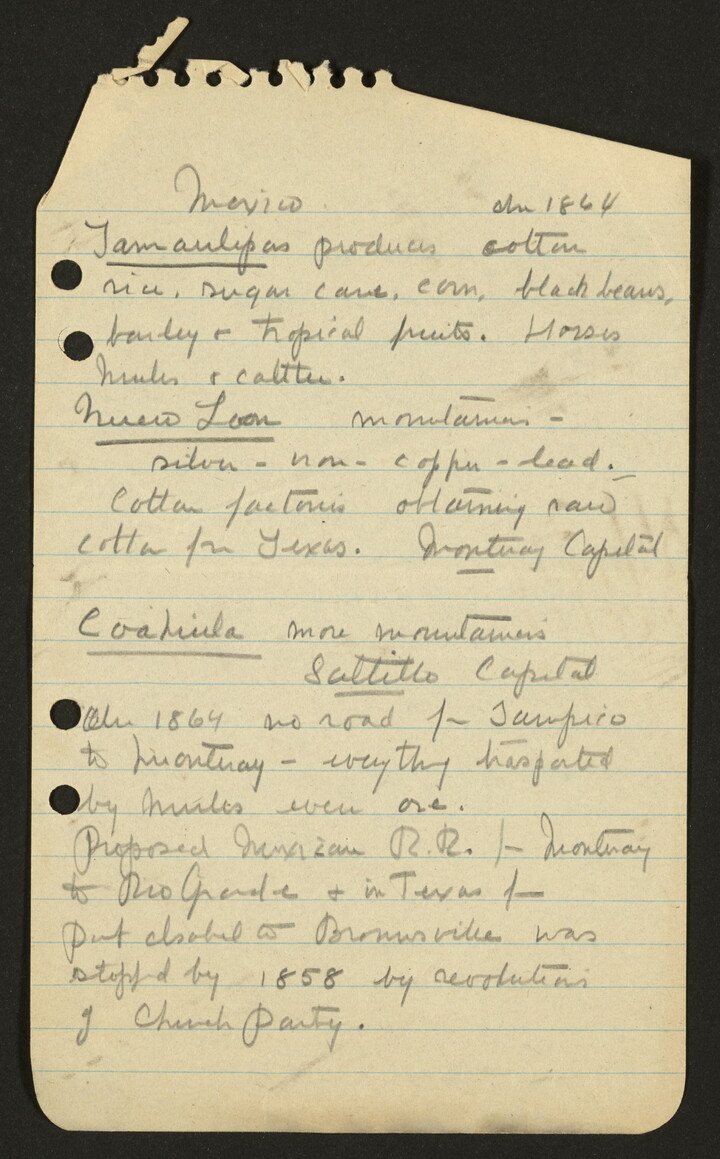 Mexico In 1864
Tamaulipas produces cotton
rice, sugar cane, corn, black beans,
barley & tropical fruits. Horses
Mules & cattle.
Nuevo Leon mountainous -
silver - iron - copper - lead.
Cotton factories obtaining raw
cotton fr Texas. Monterray Capital
Coahuila more mountainous
Saltillo Capital
In 1864 no road fr Tampico
to Monterray - everything trasported
by mules even ore.
Proposed Mexican R.R. fr Monterray
to Rio Grande & in Texas fr
Port Isabel to Brownsville was
stoppd by 1858 by revolutions
of Church Party.